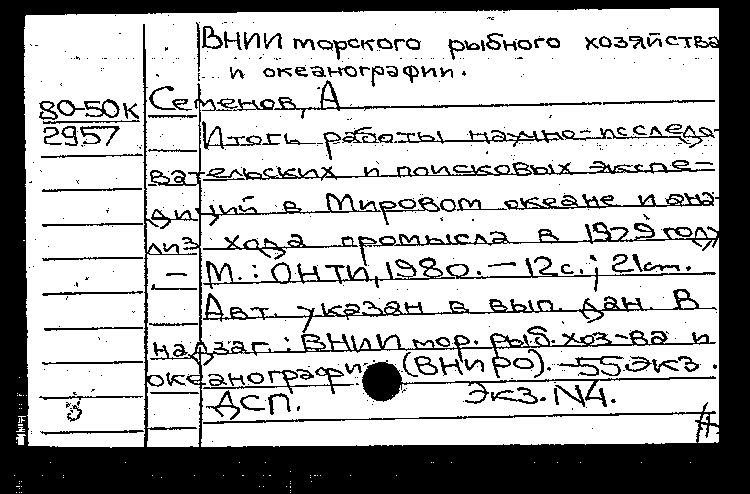 ВНИИ морского рыбного хозяйства
и океанографии.
80-50К Семенов, А
2957 Итоги работы научно-исследо-
вательских и поисковых экспе-
диций в Мировом океане и ана-
лиз хода промысла в 1979 году
- М.: ОНТИ, 1980. - 12с.; 21см.
Авт. указан в вып. дан. В
надзаг.: ВНИИ мор. рыб. хоз-ва и
океанографии (ВНИРО). - 55 экз.
ДСП. Экз. N4.